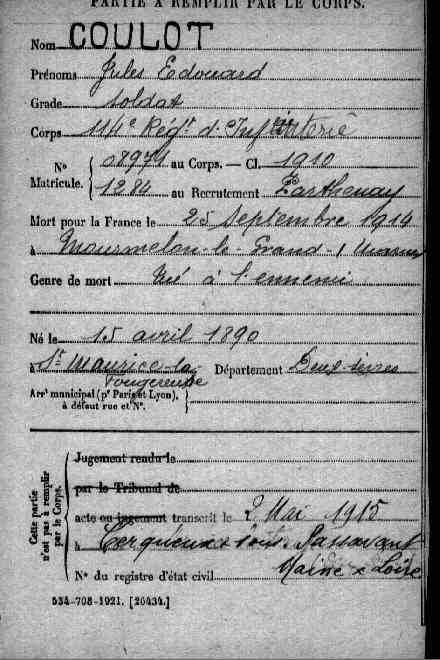 PARTIE À REMPLIR PAR LE CORPS.
Nom COULOT
Prénoms Jules Edouard
Grade Soldat
Corps 114e Régt d'Infanterie
N° Matricule. { 08971 au Corps. — Cl. 1910
1284 au Recrutement Parthenay
Mort pour la France le 25 Septembre 1914
à Mourmelon-le-Grand (Marne
Genre de mort Tué à l'ennemi
Né le 15 avril 1890
à St Maurice-la Fougereuse Département Deux-sèvres
Arrt municipal (pr Paris et Lyon), }
à défaut rue et N°.
Cette partie n'est pas à remplir par le Corps.
Jugement rendu le
par le Tribunal de
acte ou jugement transcrit le 2 Mai 1915
à Cerqueux sous Passavant
Maine & Loire
N° du registre d'état civil
534-708-1921. [26434.]